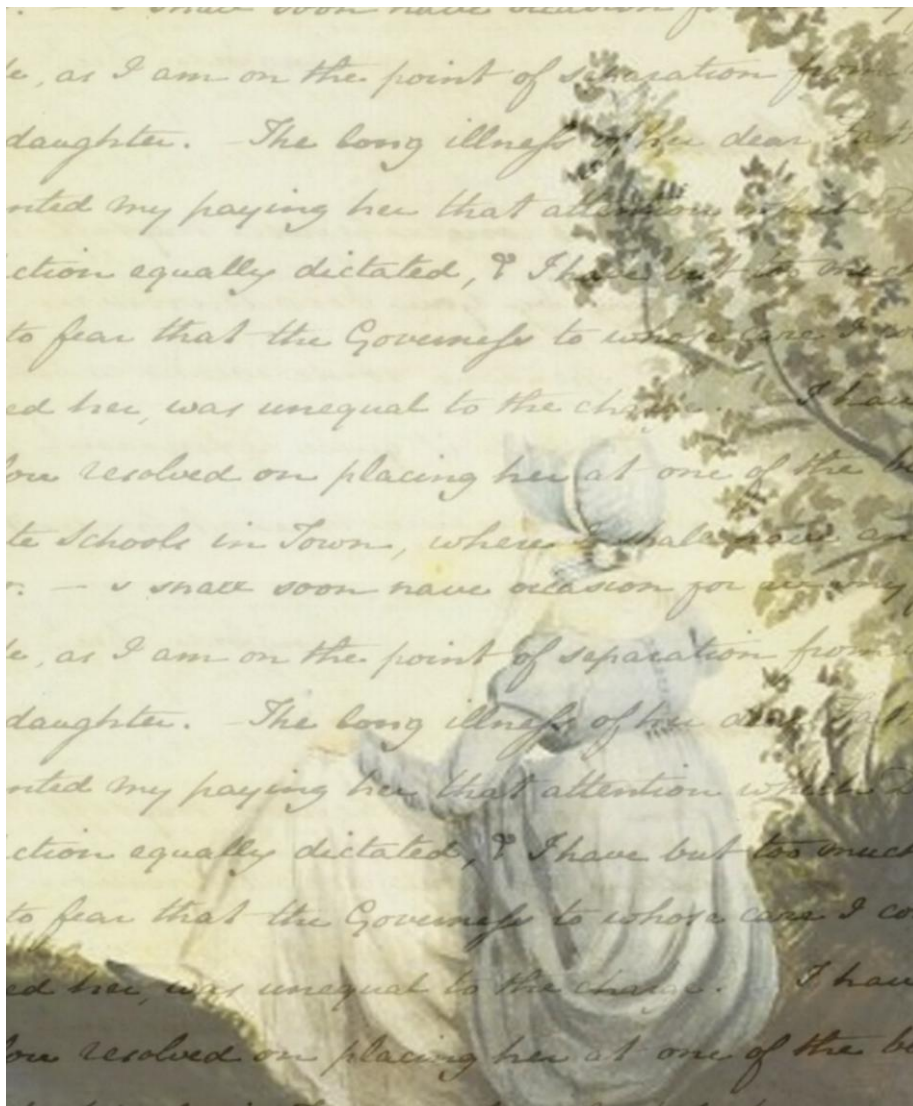 . — I shall soon have occasion for
, as I am on the point of separation from
daughter. — The long illness of her dear
nted my paying her that attention which
ction equally dictated, & I have but too much
to fear that the Governess to whose care I
ed her, was unequal to the charge. I have
resolved on placing her at one of the be
te Schools in Town, where I shall have an
. — I shall soon have occasion for
, as I am on the point of separation from
daughter. — The long illness of her dear
nted my paying her that attention which
ction equally dictated, & I have but too much
to fear that the Governess to whose care I co
ed her, was unequal to the charge. I have
resolved on placing her at one of the be